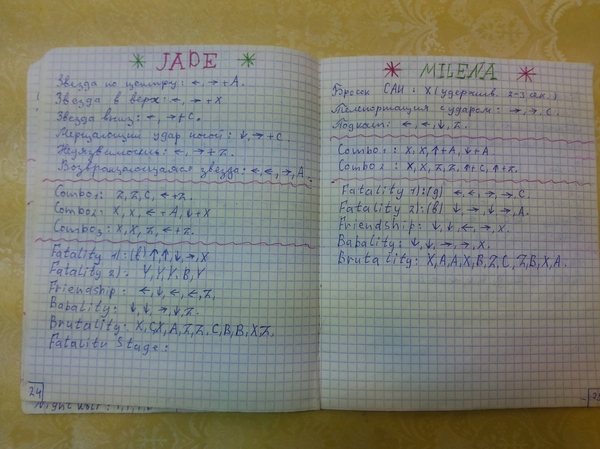 JADE
Звезда по центру: ←, → + A.
Звезда в верх: ←, → + X
Звезда вниз: ←, → + C.
Мерцающий удар ногой: ↓, → + C.
Неуязвимость: ←, → + Z.
Возвращающаяся звезда: ←, ←, →, A.
Combo1: Z, Z, C, ← + Z.
Combo2: X, X, ← + A, ↓ + X
Combo3: X, X, Z, ← + Z.
Fatality 1): (б) ↑, ↑, ↓, →, X
Fatality 2): Y, Y, Y, B, Y
Friendship: ←, ↓, ←, ←, Z.
Babality: ↓, ↓, →, ↓, Z.
Brutality: X, C, X, A, Z, Z, C, B, B, X, Z.
Fatality Stage:
24
MILENA
Бросок САИ: X (удержив. 2-3 сек.)
Телепортация с ударом: →, →, C.
Подкат: ←, ←, ↓, Z.
Combo1: X, X, ↑ + A, ↓ + A.
Combo2: X, X, Z, Z, ↑ + C, ↑ + Z.
Fatality 1): (д) ←, ←, →, →, C.
Fatality 2): (в) ↓, →, ↓, →, A.
Friendship: ↓, ↓, ←, →, X.
Babality: ↓, ↓, →, →, X.
Brutality: X, A, A, X, B, Z, C, Z, B, X, A.